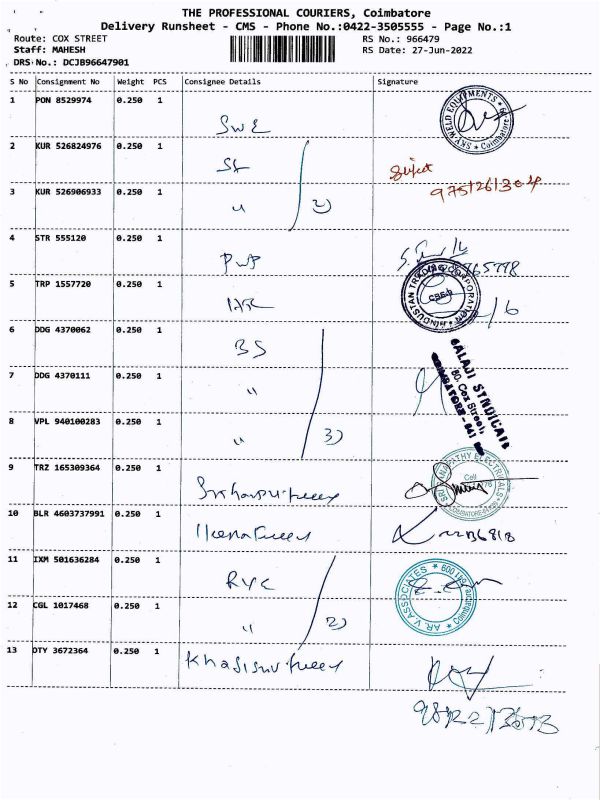 THE PROFESSIONAL COURIERS, Coimbatore
Delivery Runsheet - CMS - Phone No.:0422-3505555 - Page No.:1
Route: COX STREET RS No.: 966479
Staff: MAHESH RS Date: 27-Jun-2022
DRS No.: DCJB96647901
S No Consignment No Weight PCS Consignee Details Signature
1 PON 8529974 0.250 1 SWE
SKY WELD EQUIPMENTS * Coimbatore
2 KUR 526824976 0.250 1
3 KUR 526906933 0.250 1 " 2)
9751261304
4 STR 555120 0.250 1 PWP
5 TRP 1557720 0.250 1
HINDUSTAN TRADING CORPORATION
6 DDG 4370062 0.250 1 BS
7 DDG 4370111 0.250 1 "
BALAJI SYNDICATE
80, Cox Street,
COIMBATORE - 641
8 VPL 940100283 0.250 1 " 3)
9 TRZ 165309364 0.250 1
SRI GANAPATHY ELECTRICALS
Cell
COIMBATORE
10 BLR 4603737991 0.250 1
11 IXM 501636284 0.250 1 RYC
AR.V ASSOCIATES * Coimbatore
12 CGL 1017468 0.250 1 " 2)
13 DTY 3672364 0.250 1